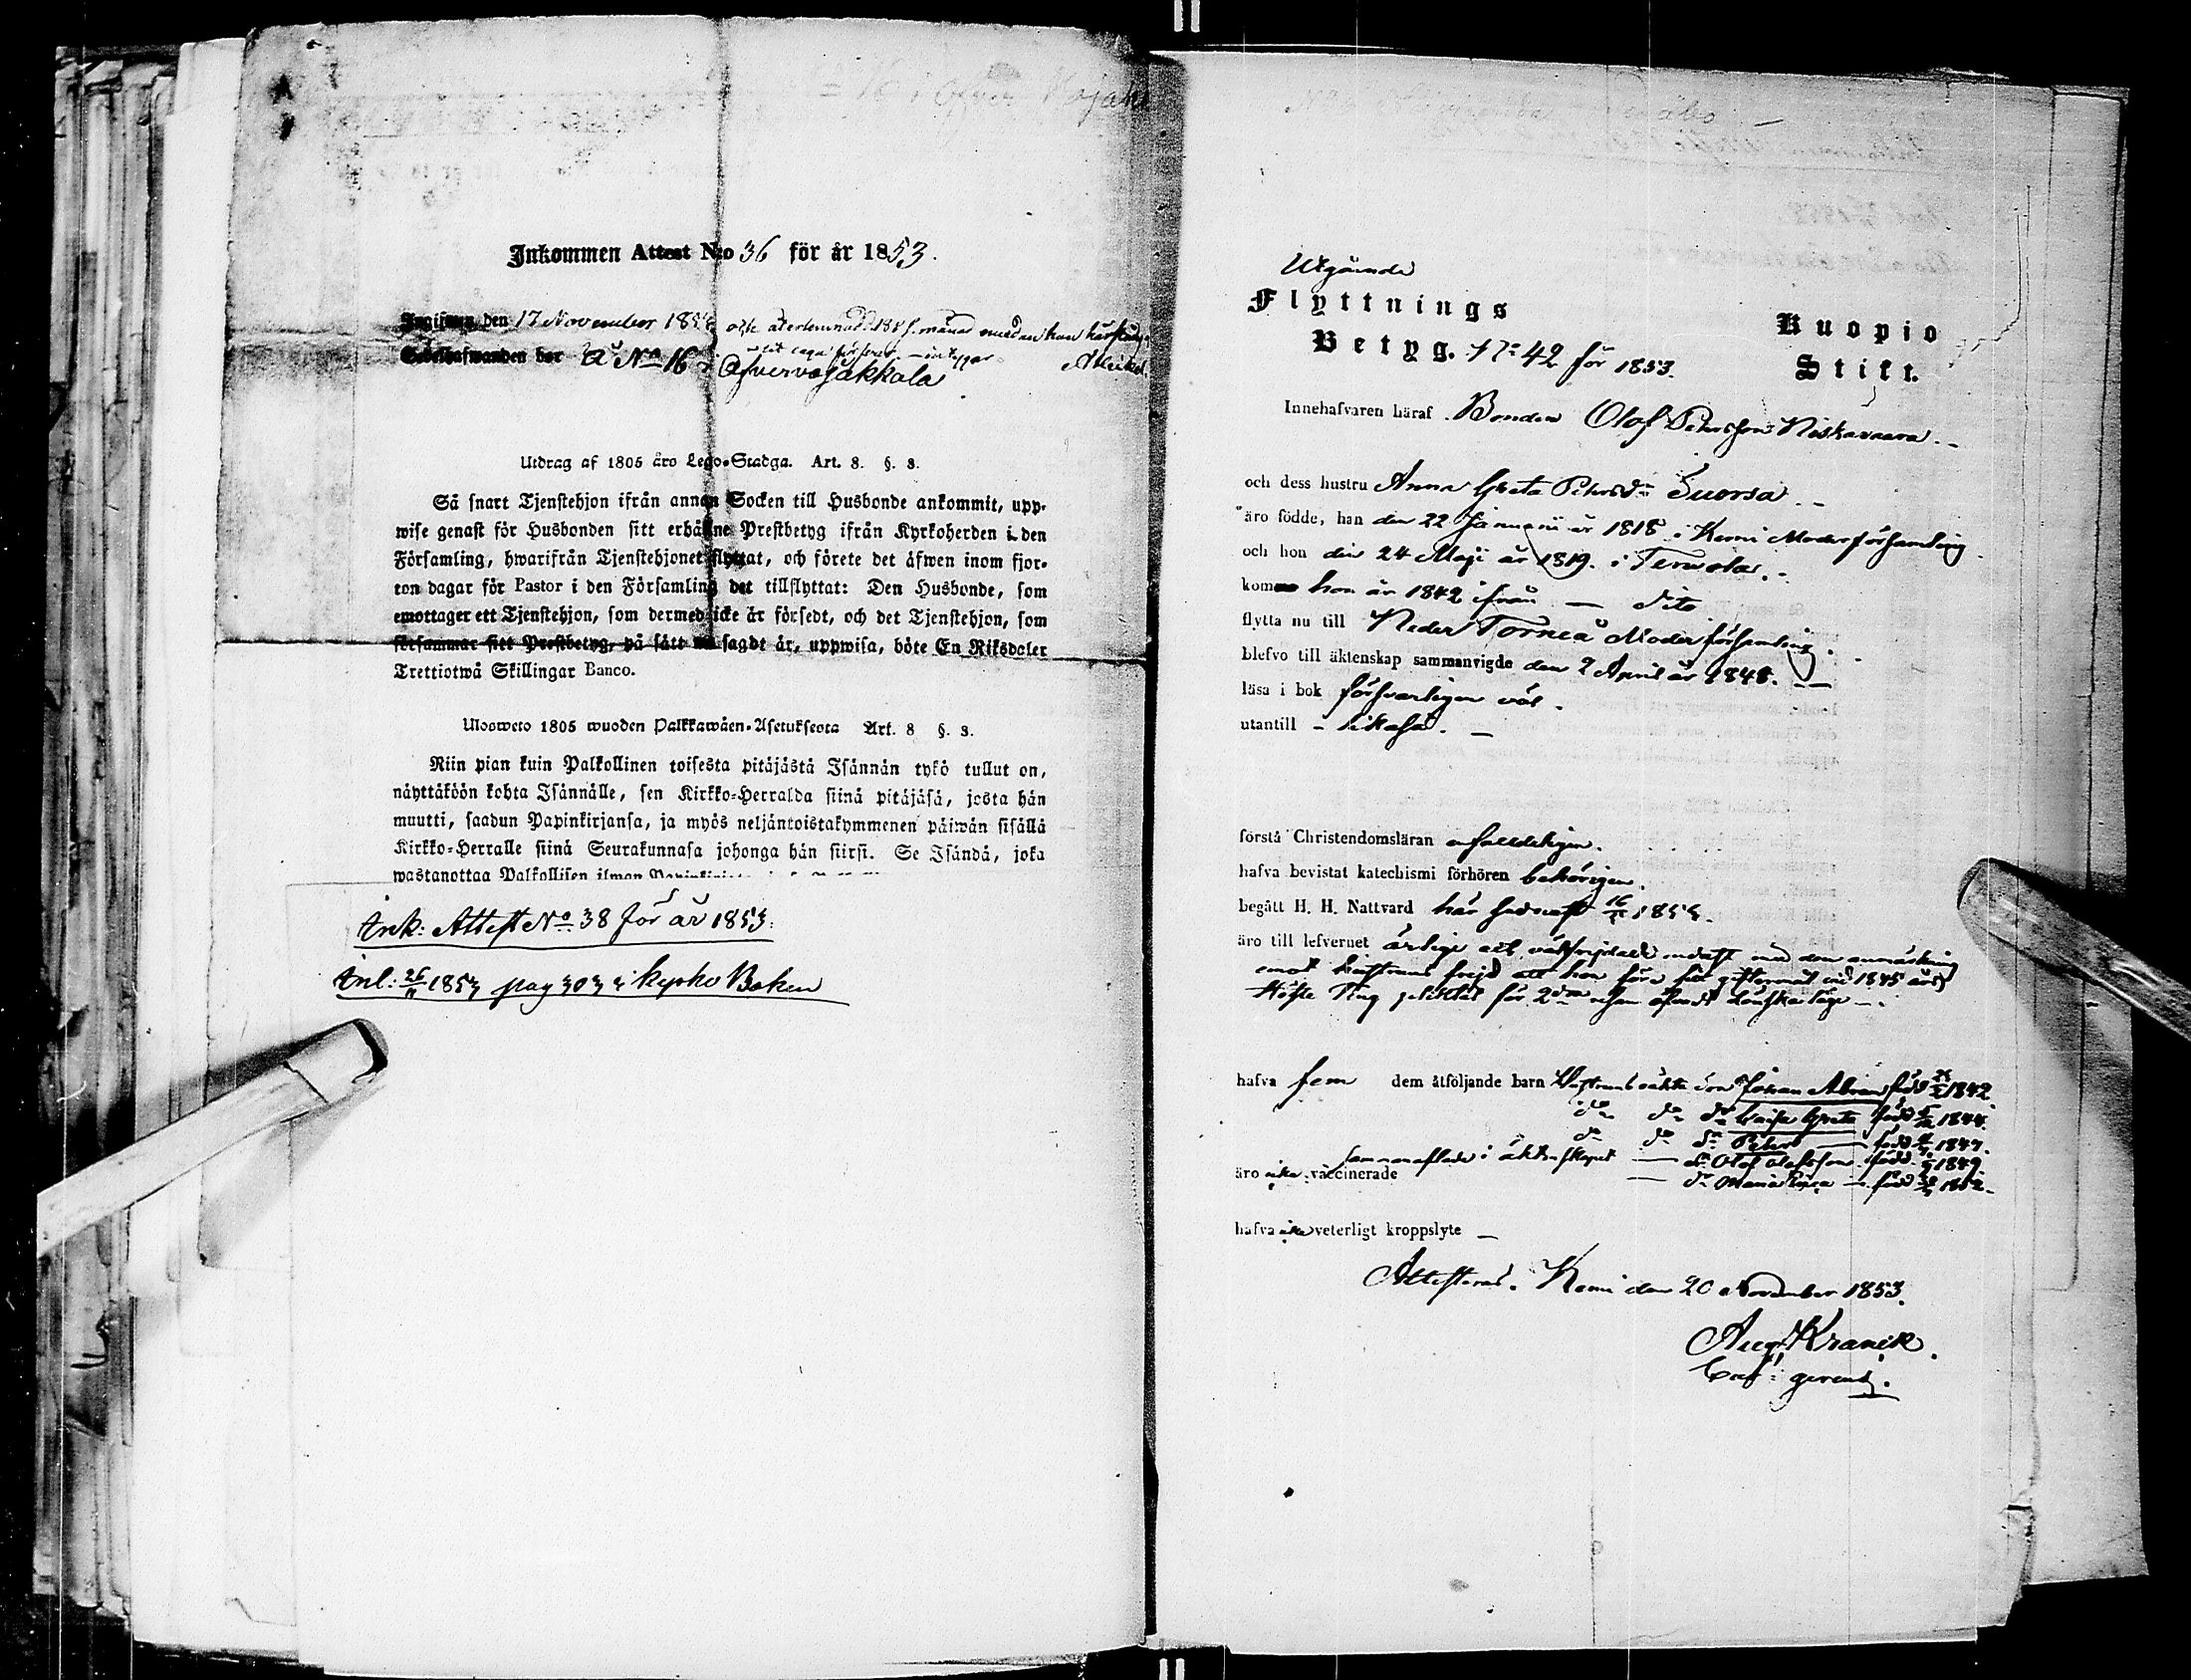 Inkommen Attest N:o 36 för år 1853.
Ingifwen den 17 November 1853
Sedelhafwanden bor å No 16 i Öfvervojakkala
Utdrag af 1805 års Lego-Stadga. Art. 8. §. 3.
Så snart Tjenstehjon ifrån annan Socken till Husbonde ankommit, upp-
wise genast för Husbonden sitt erhållne Prestbetyg ifrån Kyrkoherden i den
Församling, hwarifrån Tjenstehjonet flyttat, och förete det äfwen inom fjor-
ton dagar för Pastor i den Församling det tillflyttat: Den Husbonde, som
emottager ett Tjenstehjon, som dermed icke är försedt, och det Tjenstehjon, som
försummar sitt Prestbetyg, på sätt nu sagdt är, uppwisa, böte En Riksdaler
Trettiotwå Skillingar Banco.
Uloswето 1805 wuoden Palkkawäen-Asetuksesta Art. 8 §. 3.
Niin pian kuin Palkollinen toisesta pitäjästä Isännän tykö tullut on,
näyttäköön kohta Isännälle, sen Kirkko-Herralda siinä pitäjäsä, josta hän
muutti, saadun Papinkirjansa, ja myös neljäntoistakymmenen päiwän sisällä
Kirkko-Herralle siinä Seurakunnasa johonga hän siirsi. Se Isändä, joka
wastanottaa Palkollisen ilman
Ink: Attest No 38 för år 1853.
Inl: 26/11 1853 pag 303 i kyrko Boken
Utgående
Flyttnings
Betyg. No 42 för 1853.
Kuopio
Stift.
Innehafvaren häraf Bonden Olof Petersson Niskavaara.
och dess hustru Anna Greta Petersdr Suorsa.
äro födde, han den 22 Januarii år 1818 i Kemi Moderförsamling
och hon den 24 Maji år 1819. i Tervola.
kom hon år 1842 ifrån — dito
flytta nu till Neder Torneå Moderförsamling.
blefvo till äktenskap sammanvigde den 2 April år 1848.
läsa i bok försvarligen väl.
utantill - likaså.
förstå Christendomsläran
hafva bevistat katechismi förhören behörigen.
begått H. H. Nattvard här sednast 16/ 1853.
äro till lefvernet ärlige och välfrejdade endast med den anmärkning
emot hustruns frejd att hon före sitt giftermål vid 1845 års
Höste Ting pliktat för 2dra resan lönskaläge
hafva fem dem åtföljande barn Hustruns oäkta son Johan Abram född 1842
do do dr Caisa Greta född 1844.
do do sn Petter född 1847.
sammanaflade i äktenskapet — sn Olof Olofsson född 1849.
äro icke vaccinerade — dr Maria född 1852.
hafva icke veterligt kroppslyte —
Attesteras. Kemi den 20 November 1853.
Aug. Kranck.